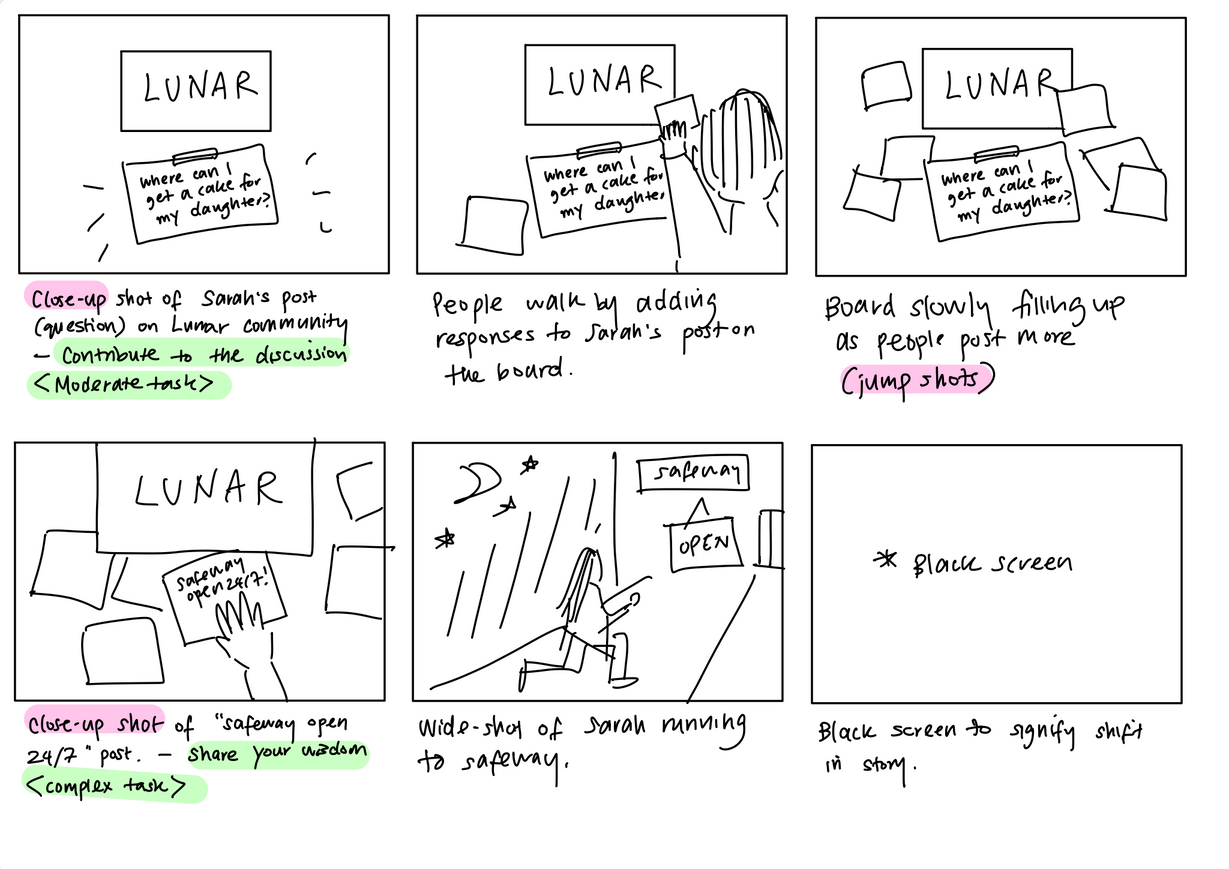 LUNAR
where can I
get a cake for
my daughter?
Close-up shot of Sarah's post
(question) on Lunar community
- Contribute to the discussion
<Moderate task>
LUNAR
where can I
get a cake for
my daughter
People walk by adding
responses to Sarah's post on
the board.
LUNAR
where can I
get a cake for
my daughter?
Board slowly filling up
as people post more
(jump shots)
LUNAR
safeway
open 24/7!
Close-up shot of "safeway open
24/7" post. - share your wisdom
<complex task>
safeway
OPEN
Wide-shot of Sarah running
to safeway.
* Black screen
Black screen to signify shift
in story.